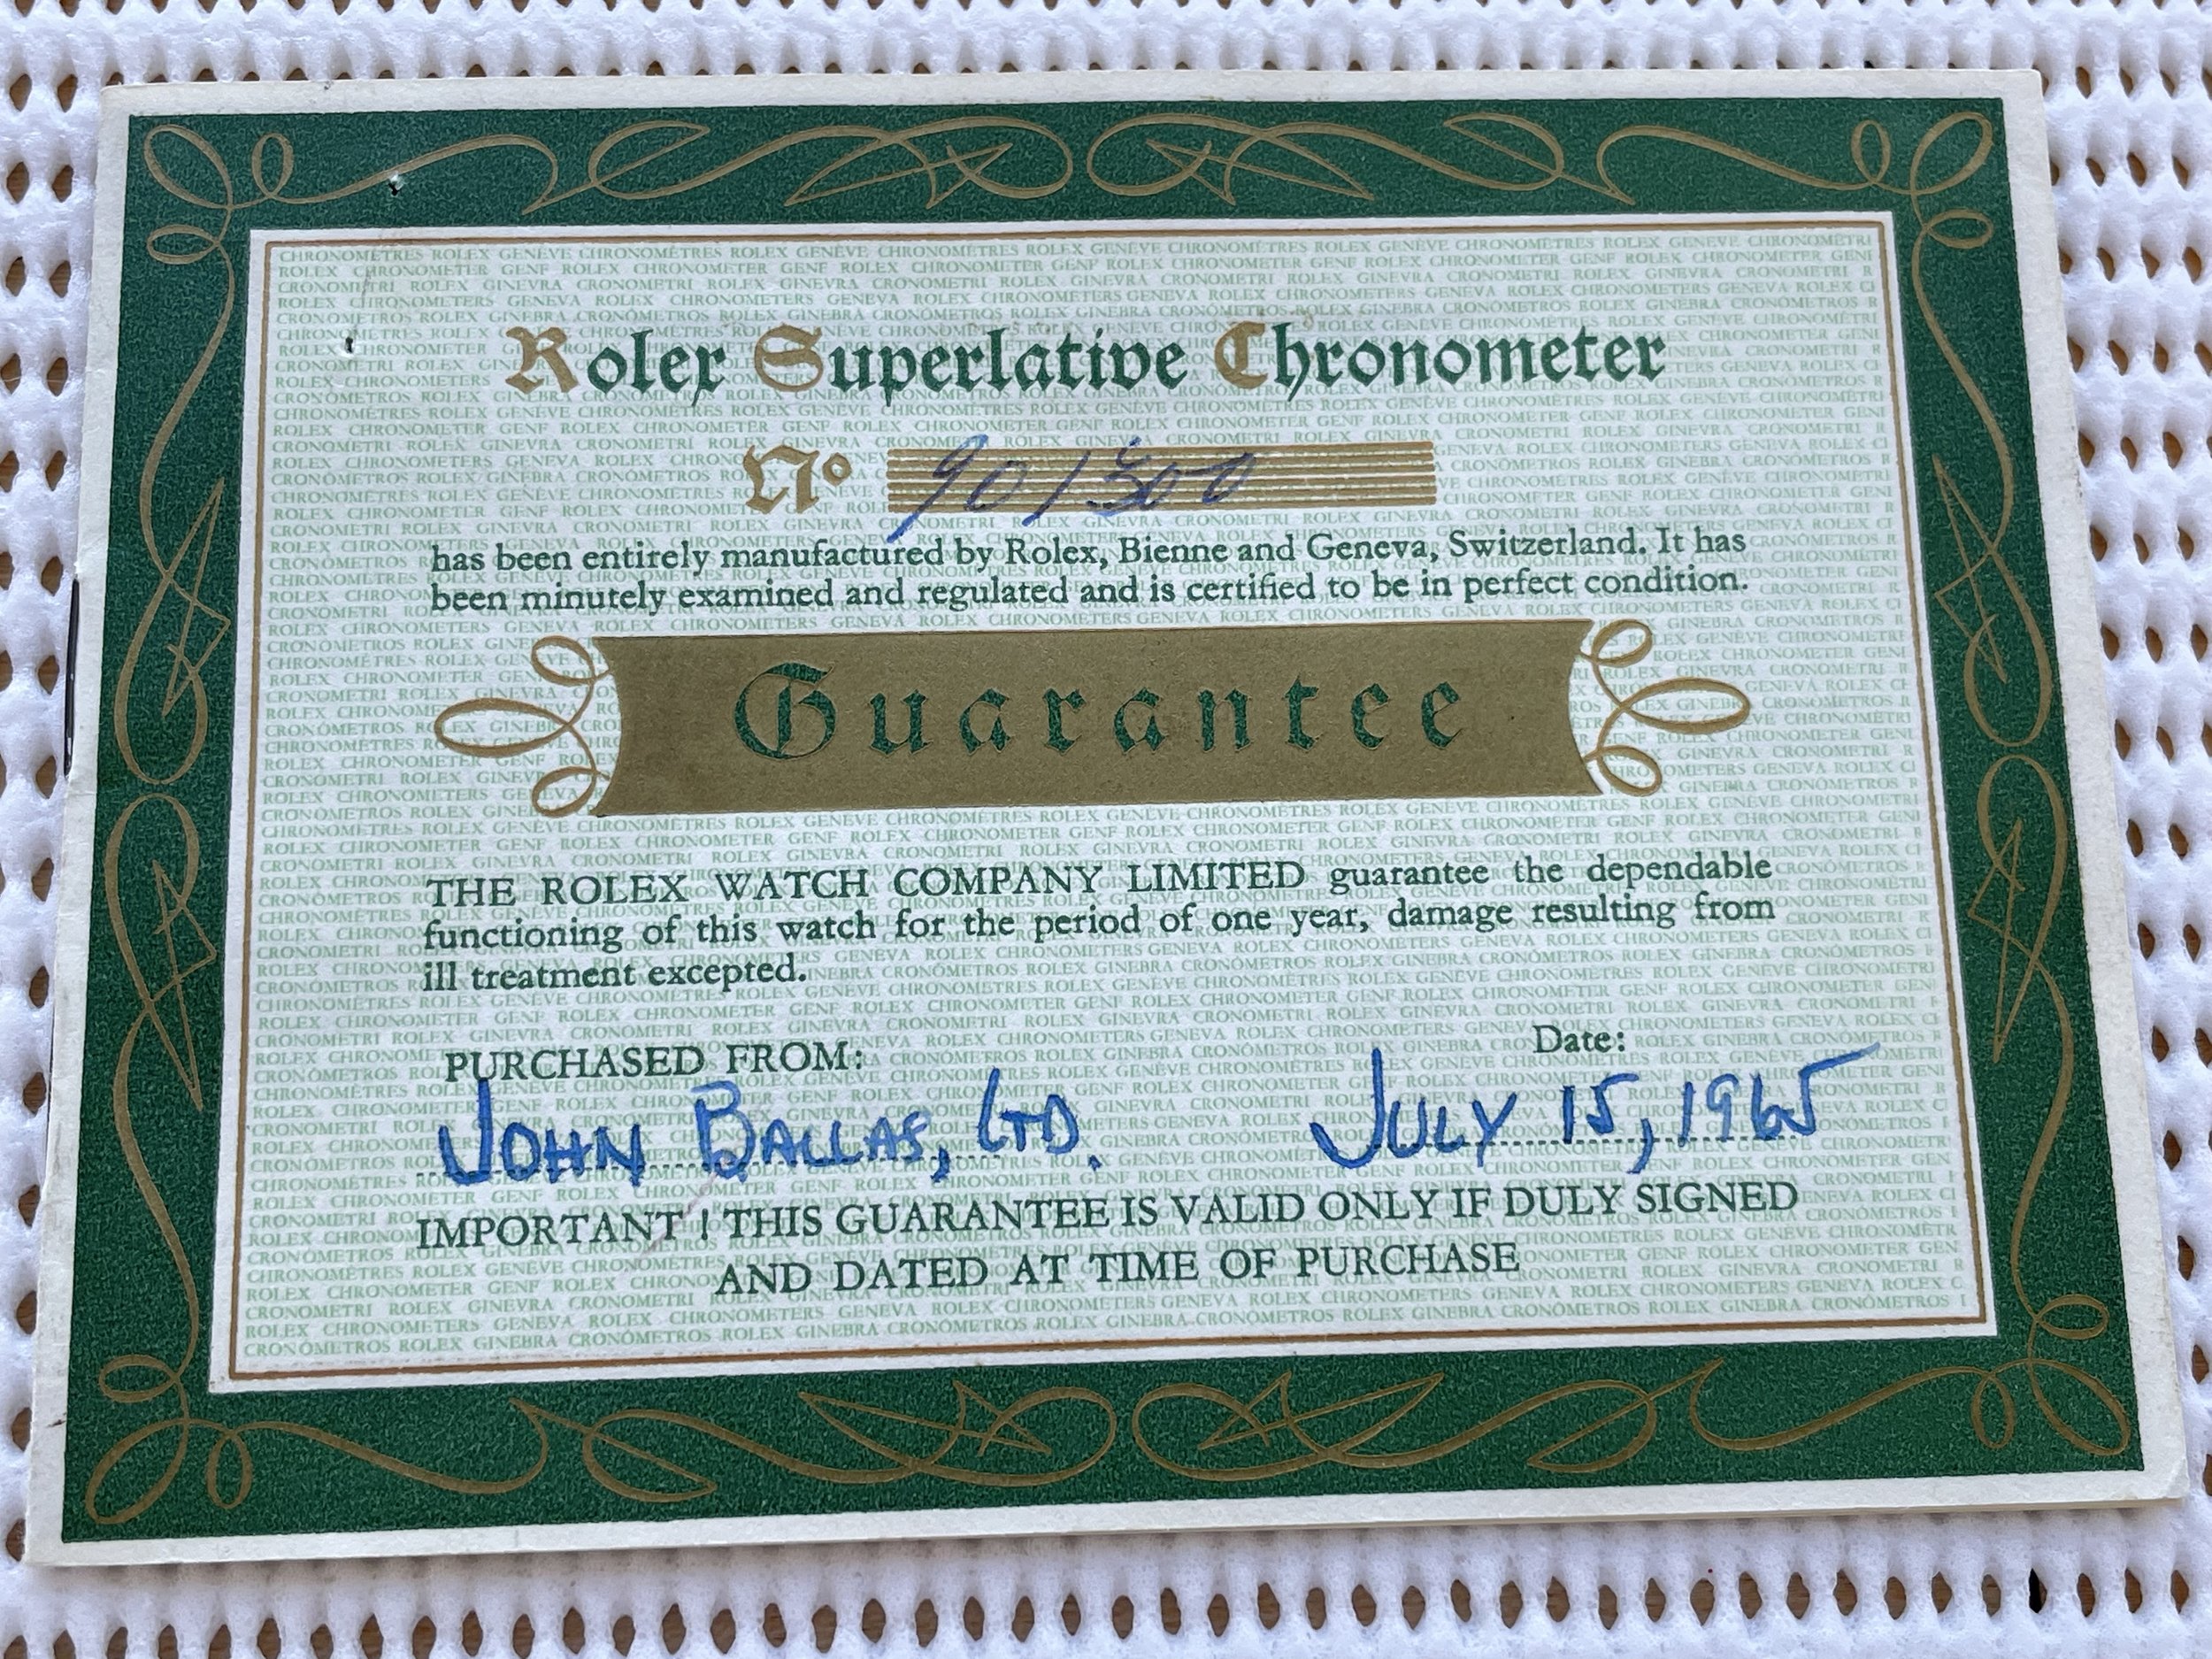 Rolex Superlative Chronometer
Nº 901300
has been entirely manufactured by Rolex, Bienne and Geneva, Switzerland. It has
been minutely examined and regulated and is certified to be in perfect condition.
Guarantee
THE ROLEX WATCH COMPANY LIMITED guarantee the dependable
functioning of this watch for the period of one year, damage resulting from
ill treatment excepted.
PURCHASED FROM:
Date:
JOHN BALLAS, LTD.
JULY 15, 1965
IMPORTANT ! THIS GUARANTEE IS VALID ONLY IF DULY SIGNED
AND DATED AT TIME OF PURCHASE